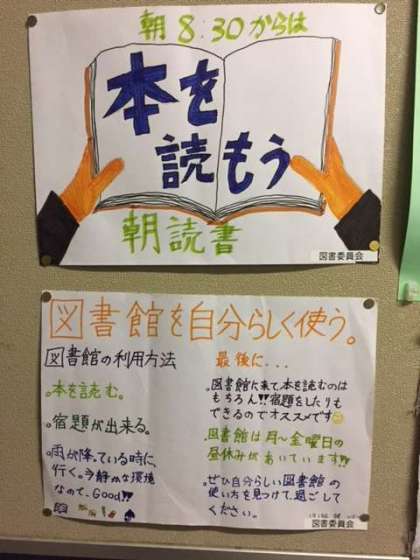 朝8:30からは
本を
読もう
朝読書
図書委員会
図書館を自分らしく使う。
図書館の利用方法
・本を読む。
・宿題が出来る。
・雨が降っている時に、
行く。今静かな環境
なので、Good!!
最後に...
・図書館に来て本を読むのは
もちろん!!宿題をしたりも
できるのでオススメです
・図書館は月〜金曜日の
昼休みがあいています!!
・ぜひ自分らしい図書館の
使い方を見つけて、過ごして
ください。
図書委員会